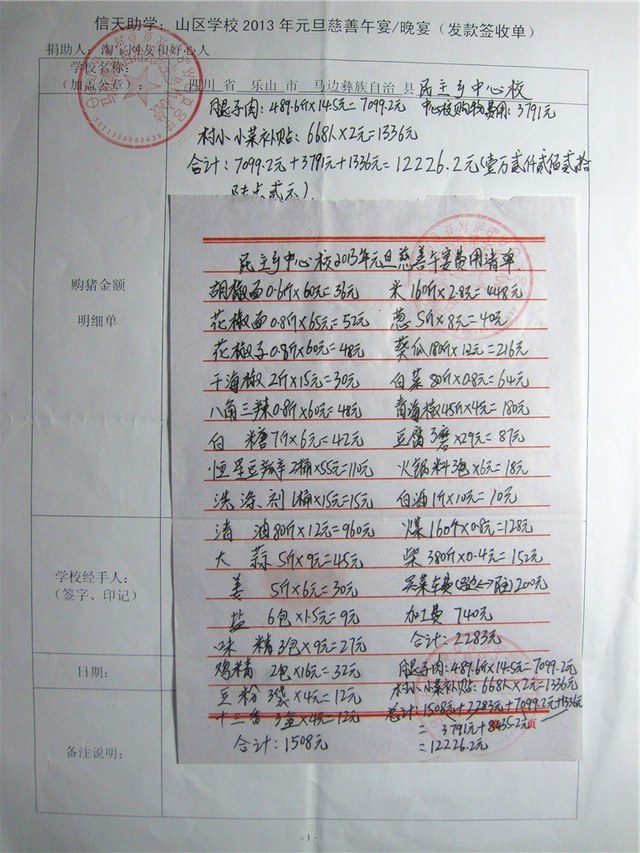 信天助学：山区学校2013年元旦慈善午宴/晚宴（发款签收单）
捐助人：淘气网友和好心人
学校名称：
（加盖公章）：
四川 省 乐山 市 马边彝族自治 县 民主乡中心校
腿子肉：489.6斤×14.5元=7099.2元 中心校购物费用：3791元
村小小菜补贴：668人×2元=1336元
合计：7099.2元+3791元+1336元=12226.2元(壹万贰仟贰佰贰拾
陆点贰元)
购猪金额
明细单
民主乡中心校2013年元旦慈善午宴费用清单
胡椒面0.6斤×60元=36元 米 160斤×2.8元=448元
花椒面0.8斤×65元=52元 葱 5斤×8元=40元
花椒子0.8斤×60元=48元 180斤×1.2元=216元
干海椒 2斤×15元=30元 白菜 80斤×0.8元=64元
八角三辣0.8斤×60元=48元 青海椒45斤×4元=180元
白 糖 7斤×6元=42元 豆腐3磨×29元=87元
恒星豆瓣 2桶×55元=110元 火锅料3包×6元=18元
洗涤剂1桶×15元=15元 白油1斤×10元=10元
清 油80斤×12元=960元 煤 160斤×0.8元=128元
大 蒜 5斤×9元=45元 柴 380斤×0.4元=152元
姜 5斤×6元=30元 买菜车费 200元
盐 6包×1.5元=9元 加工费 740元
味 精3包×9元=27元 合计：2283元
鸡精 2包×16元=32元 腿子肉：489.6斤×14.5元=7099.2元
豆粉3袋×4元=12元 村小小菜补贴：668人×2元=1336元
十三香 3盒×4元=12元 总计：1508元+2283元+7099.2元+1336元
合计：1508元 = 3791元+8435.2元
=12226.2元
学校经手人：
（签字、印记）
日期：
备注说明：
- 1 -